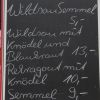 Wildsau Semmel
5,-
Wildsau mit
Knödel und
Blaukraut 13,-
Rehragout mit
Knödel 10,-
Semmel 9,-